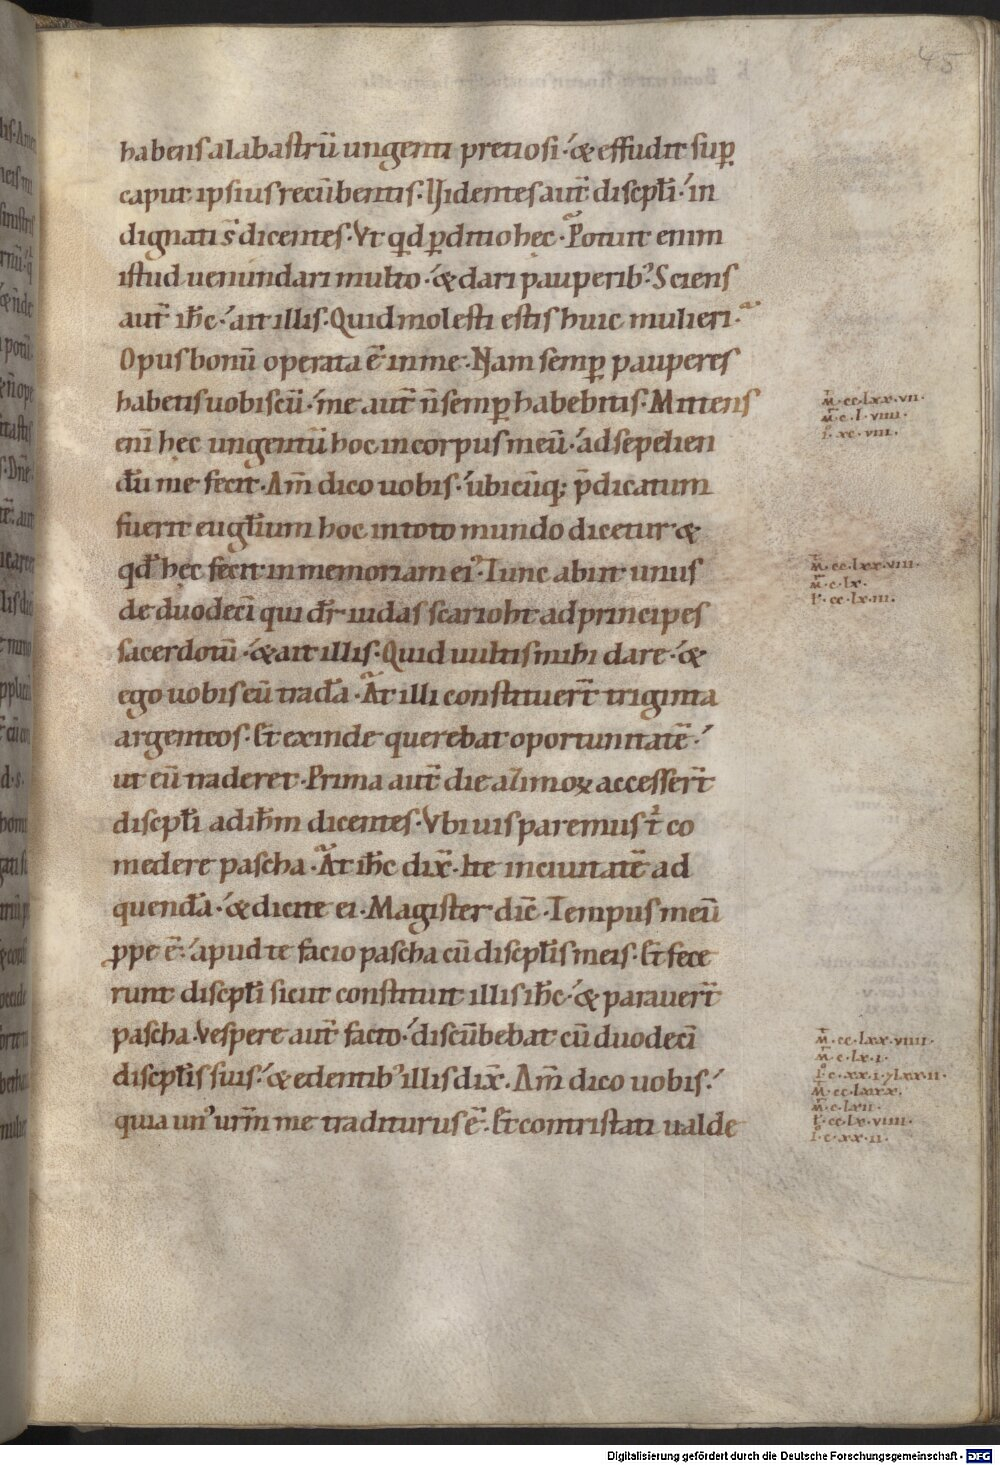 45
habens alabastrū ungenti pretiosi· & effudit sup̱
caput ipsius recūbentis· Videntes aut̄ discpłi· in
dignati s̄ dicentes· Vt qd p̱ditio hęc· Potuit enim
istud uenundari multo· & dari pauperib᾽· Sciens
aut̄ ih̄c· ait illis· Quid molesti estis huic mulieri·
Opus bonū operata ē in me· Nam semp̱ pauperes
habetis uobiscū· me aut̄ n̄ semp̱ habebitis· Mittens
eni hęc ungentū hoc in corpus meū· ad sepelien
dū me fecit· Am̄ dico uobis· ubicūq; p̄dicatum
fuerit eugłium hoc in toto mundo dicetur &
qđ hęc fecit in memoriam ei᾽· Tunc abiit unus
de duodeci qui dr̄ iudas scarioht ad principes
sacerdotū· & ait illis· Quid uultis mihi dare· &
ego uobis eū tradā· At illi constituer̄t triginta
argenteos· Et exinde querebat oportunitatē·
ut eū traderet· Prima aut̄ die azimoꝝ accesser̄t
discpłi ad ih̄m dicentes· Vbi uis paremus t̄ co
medere pascha· At ih̄c dix̄· Ite in ciuitatē ad
quendā· & dicite ei· Magister dic̄· Tempus meū
ꝓpe ē· apud te facio pascha cū discpłis meis· Et fece
runt discpłi sicut constituit illis ih̄c· & parauer̄t
pascha· Vespere aut̄ facto· discūbebat cū duodeci
discpłis suis· & edentib᾽ illis dix̄· Am̄ dico uobis·
quia un᾽ urm̄ me traditurus ē· Et contristati ualde
m̄· cc· lxx· vii·
m̄· c· l· viiii·
i· xc· viii·
m̄· cc· lxx· viii·
m̄· c· lx·
l· cc· lx· iii·
m̄· cc· lxx· viiii·
m̄· c· lx· i·
i· c· xx· i· 7 lxx· ii·
m̄· cc· lxxx·
m̄· c· lxii·
l· cc· lx· viiii·
i· c· xx· ii·
Digitalisierung gefördert durch die Deutsche Forschungsgemeinschaft - DFG